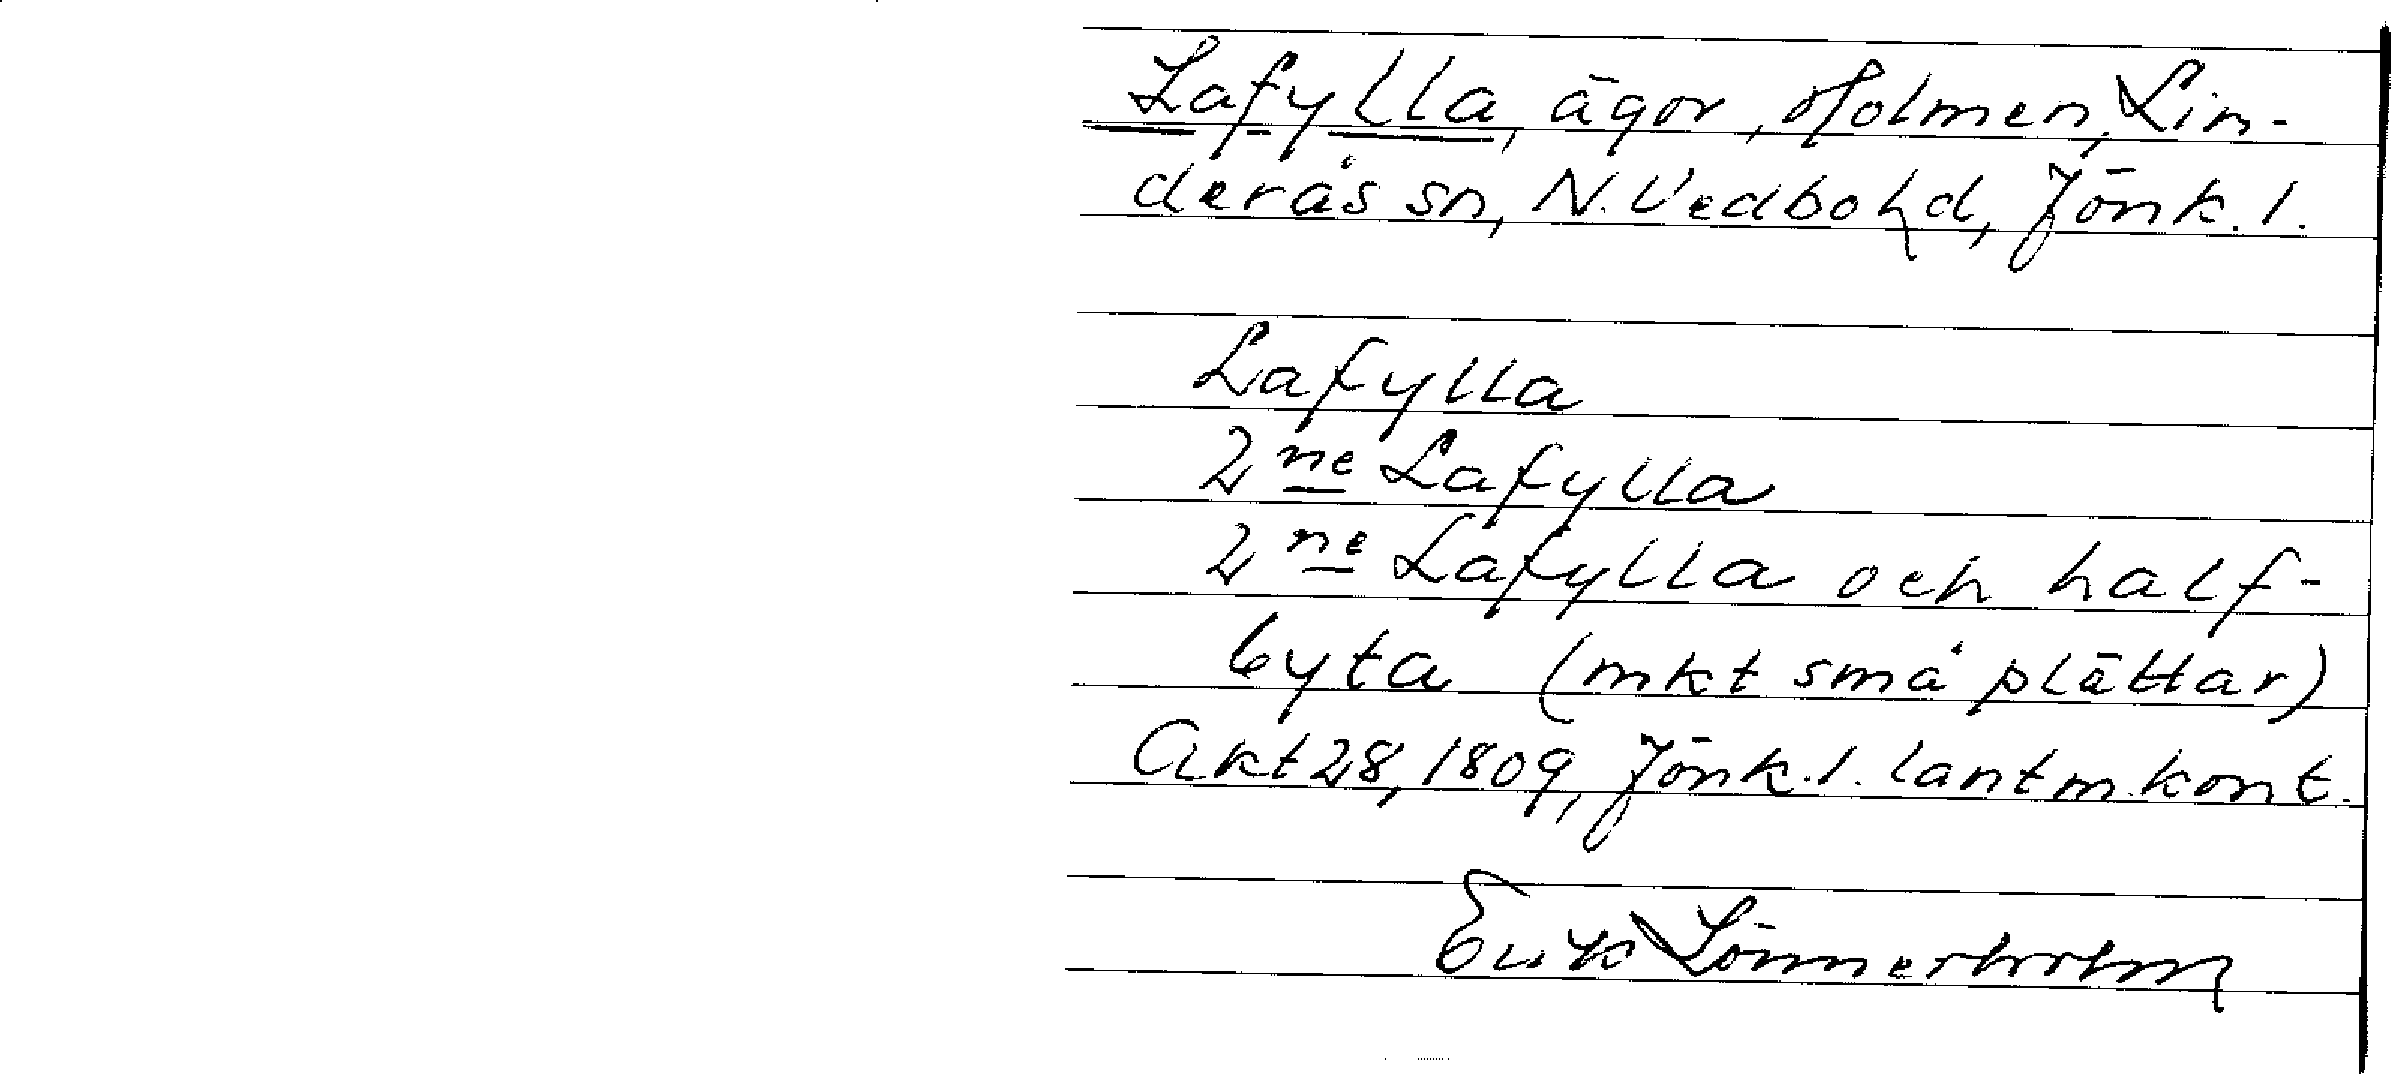 Lafylla, ägor, Holmen, Lin-
derås sn, N. Vedbo hd, Jönk. l.
Lafylla
2ne Lafylla
2ne Lafylla och half-
byta (mkt små plättar)
Akt 28, 1809, Jönk. l. lantm. kont.
Erik Lönnerholm